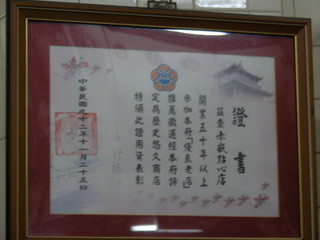 證書
茲查赤嵌點心店
開業三十年以上
參加本府「優良老店」
推薦徵選經本府評
定為歷史悠久商店
特頒此證用資表彰
中華民國九十二年十一月二十五日